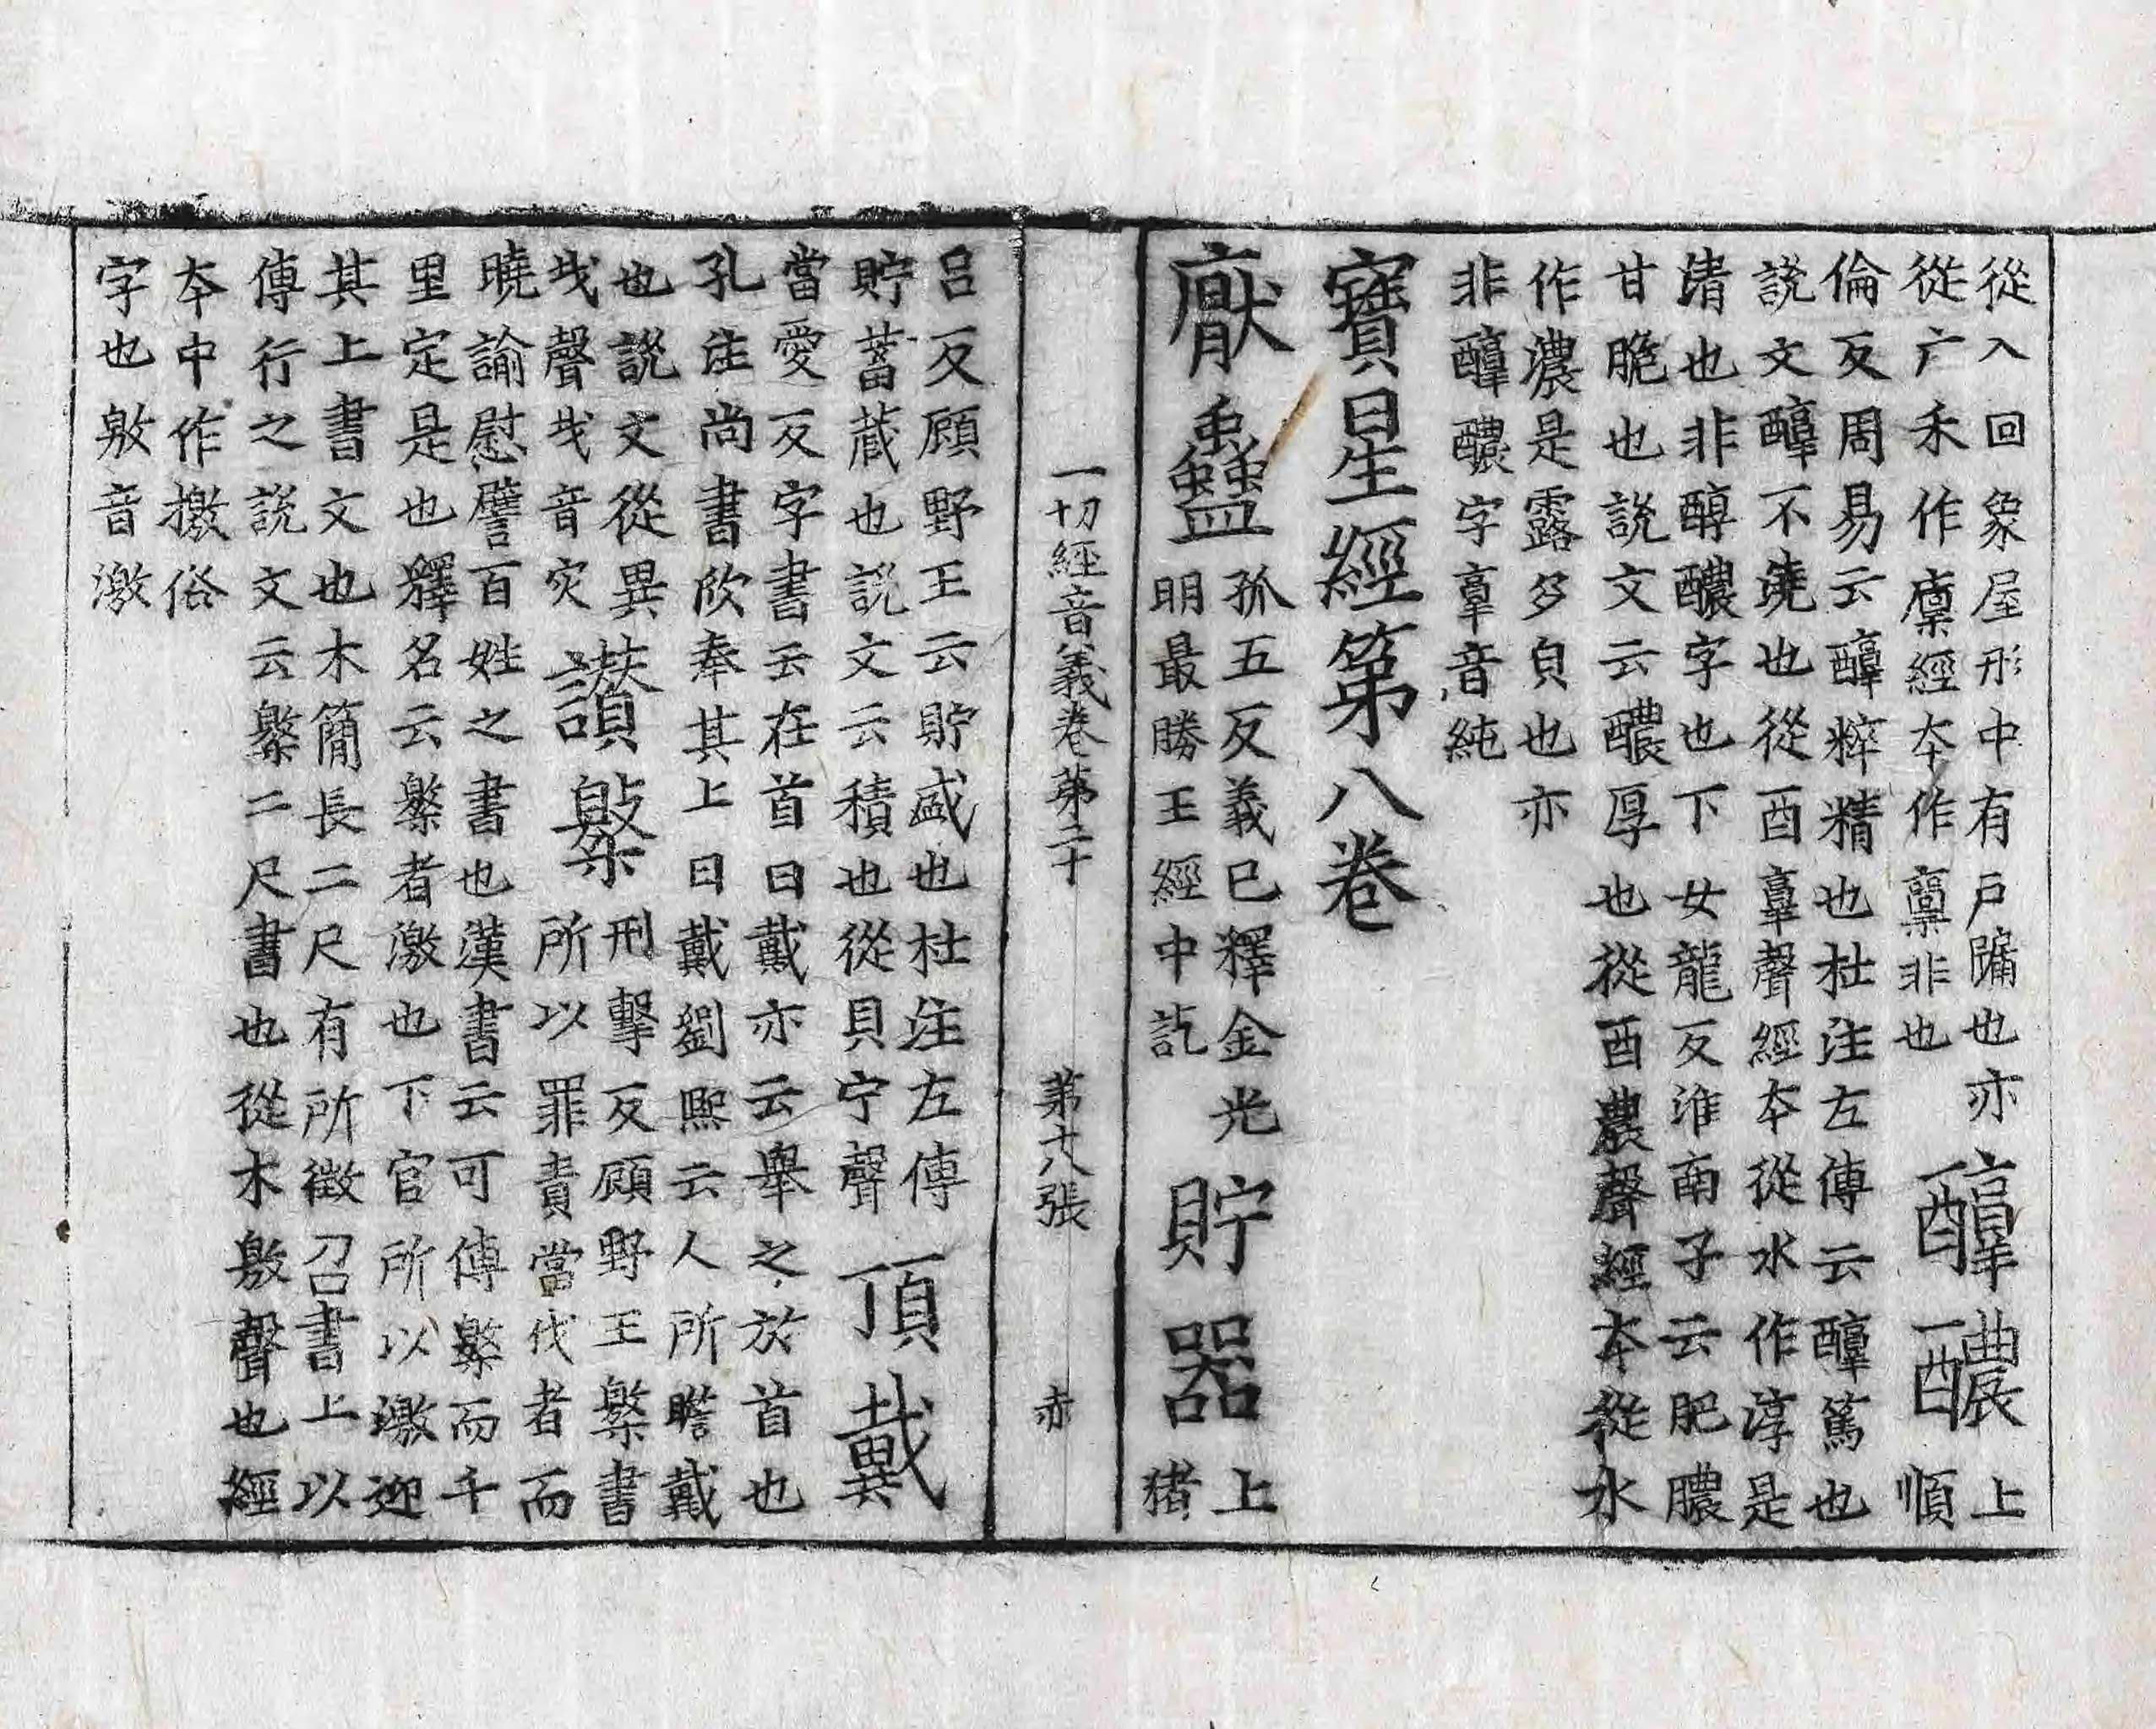 從入回象屋形中有戶牖也亦
從亠禾作廩經夲作稟非也
醕醲上
順
倫反周易云醕粹精也杜注左傳云醕篤也
說文醕不澆也從酉𦎧聲經夲從水作淳是
清也非醇醲字也下女龍反淮南子云肥膿
甘脆也說文云醲厚也從酉農聲經夲從水
作濃是露多皃也亦
非醕醲字𦎧音純
寶星經第八卷
厭蠱
孤五反義已釋金光
明最勝王經中訖
貯器上
猪
一切經音義卷第二十 第十八張 赤
呂反顧野王云貯盛也杜注左傳
貯蓄蔵也說文云積也從貝宁聲
頂戴
當愛反字書云在首曰戴亦云舉之於首也
孔注尚書欣奉其上曰戴劉熙云人所瞻戴
也說文從異
𢦏聲𢦏音灾
讃檄
刑擊反顧野王檄書
所以罪責當伐者而
曉諭慰譬百姓之書也漢書云可傳檄而千
里定是也釋名云檄者激也下官所以激迎
其上書文也木簡長二尺有所徵召書上以
傳行之說文云檄二尺書也從木敫聲也經
夲中作撽俗
字也敫音激